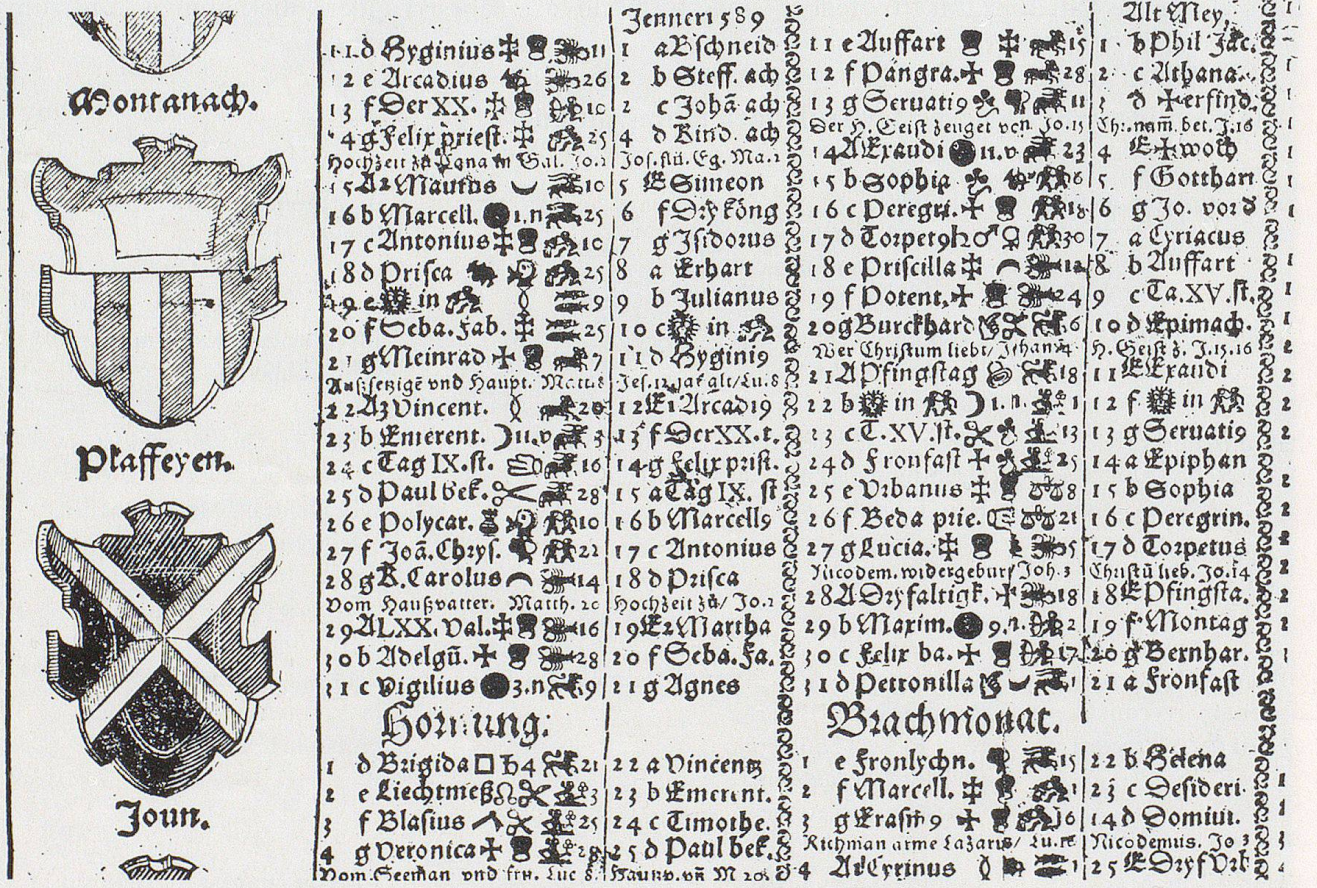 Montanach.
Pfaffeyen.
Joun.
11 d Hyginius 11
12 e Arcadius 26
13 f Der XX. 10
14 g Felix priest. 25
Hochzeit zu Cana in Gal. Jo. 2
15 A2 Maurus 10
16 b Marcell. 1.n 25
17 c Antonius 10
18 d Prisca 25
19 e in 9
20 f Seba. Fab. 25
21 g Meinrad 7
Außsetzigē vnd Haupt. Matt. 8
22 A3 Vincent. 20
23 b Emerent. 11.v 3
24 c Tag IX. st. 16
25 d Paul bek. 28
26 e Polycar. 10
27 f Joā. Chrys. 22
28 g K. Carolus 14
Vom Haußvatter. Matth. 20
29 A LXX. Val. 16
30 b Adelgū. 28
31 c Vigilius 3.n 9
Hornung.
1 d Brigida □ ♄ 4 21
2 e Liechtmeß 3
3 f Blasius 25
4 g Veronica 28
Vom Seeman vnd Luc 8
Jenner 1589
1 a Bschneid
2 b Steff. ach
2 c Johā ach
4 d Kind. ach
Jos. flü. Eg. Ma. 2
5 E Simeon
6 f Dry köng
7 g Isidorus
8 a Erhart
9 b Julianus
10 c in
11 d Hygini9
Jes. 12. jar alt/Lu. 8
12 E1 Arcadi9
13 f Der XX. t.
14 g Felix prist.
15 a Tag IX. st
16 b Marcell9
17 c Antonius
18 d Prisca
Hochzeit zü/ Jo. 2
19 E2 Martha
20 f Seba. Fa.
21 g Agnes
22 a Vincentz
23 b Emerent.
24 c Timothe.
25 d Paul bek.
M 20
11 e Auffart 15
12 f Pangra. 28
13 g Seruati9 11
Der H. Geist zeuget von Jo. 15
14 A Exaudi 11.v 23
15 b Sophia 6
16 c Peregri. 18
17 d Torpet9 ♄ ♂ ♀ 30
18 e Priscilla 12
19 f Potent. 24
20 g Burckhard 6
Wer Christum liebt/ Johan 4
21 A Pfingstag 18
22 b in 1.n. 1
23 c T. XV. st. 13
24 d Fronfast 25
25 e Vrbanus 8
26 f Beda prie. 21
27 g Lucia. 5
Nicodem. widergeburt Joh. 3
28 A Dryfaltigk. 18
29 b Maxim. 9.n. 2
30 c Felix ba. 17
31 d Petronilla 1
Brachmonat.
1 e Fronlychn. 15
2 f Marcell. 1
3 g Erasm9 16
Richman arme Lazarus/ Lu.
4 A1 Cyrinus 1
Alt Mey.
1 b Phil Jac.
2 c Athana.
3 d ✠erfind.
Chr. nam̄. bet. J. 16
4 E ✠woch
5 f Gotthart
6 g Jo. vor d
7 a Cyriacus
8 b Auffart
9 c Ta. XV. st.
10 d Epimach.
H. Geist z. J. 15. 16
11 E Exaudi
12 f in
13 g Seruati9
14 a Epiphan
15 b Sophia
16 c Peregrin.
17 d Torpetus
Christū lieb. Jo. 14
18 E Pfingsta.
19 f Montag
20 g Bernhar.
21 a Fronfast
22 b Helena
23 c Desideri
14 d Domiti.
Nicodemus. Jo 3
25 E Dryf